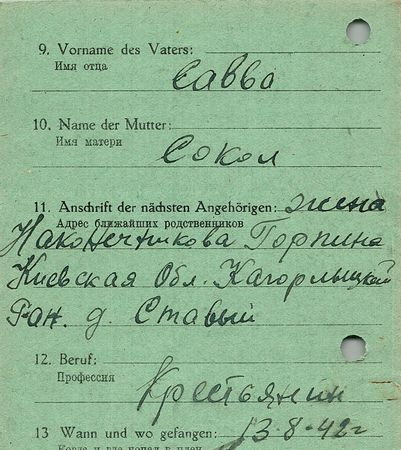 9. Vorname des Vaters:
Имя отца
Савво
10. Name der Mutter:
Имя матери
Сокол
11. Anschrift der nächsten Angehörigen: жена
Адрес ближайших родственников
Наконечникова Горпина
Киевская Обл. Кагорлыцкий
Ран. д. Ставый
12. Beruf:
Профессия
Крестьянин
13 Wann und wo gefangen: 13·8·42г
Когда и где попал в плен